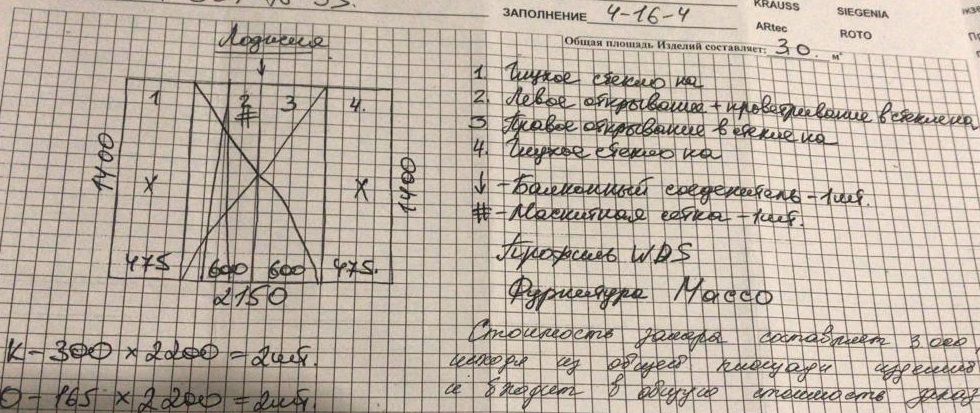 ЗАПОЛНЕНИЕ 4-16-4
KRAUSS SIEGENIA
ARtec ROTO
Общая площадь Изделий составляет: 30. м²
Лоджия
1 2 3 4.
# 
1400 х х 1400
475 600 600 475.
2150
1. Глухое стекло на
2. Левое открывание + проветривание в стеклена
3 Правое открывание в стекле на
4. Глухое стекло на
↓ - Балконный соеденитель - 1шт.
# - Маскитная сетка - 1шт.
Профиль WDS
Фурнитура Massо
К - 300 × 2200 = 2шт.
О - 165 × 2200 = 2шт.
Стоимость замера составляет 3 000
исходя из общей площади изделий
и входит в общую стоимость заказ